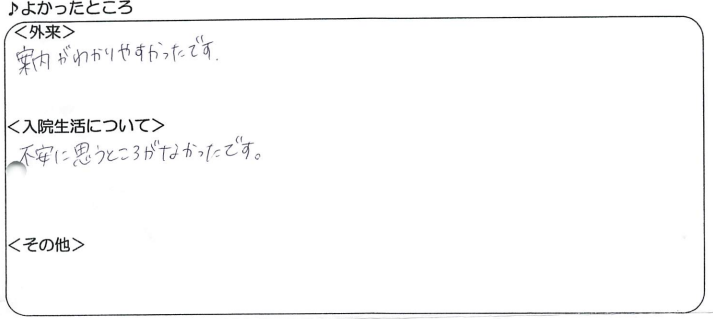 ♪よかったところ
＜外来＞
案内がわかりやすかったです.
＜入院生活について＞
不安に思うところがなかったです。
＜その他＞